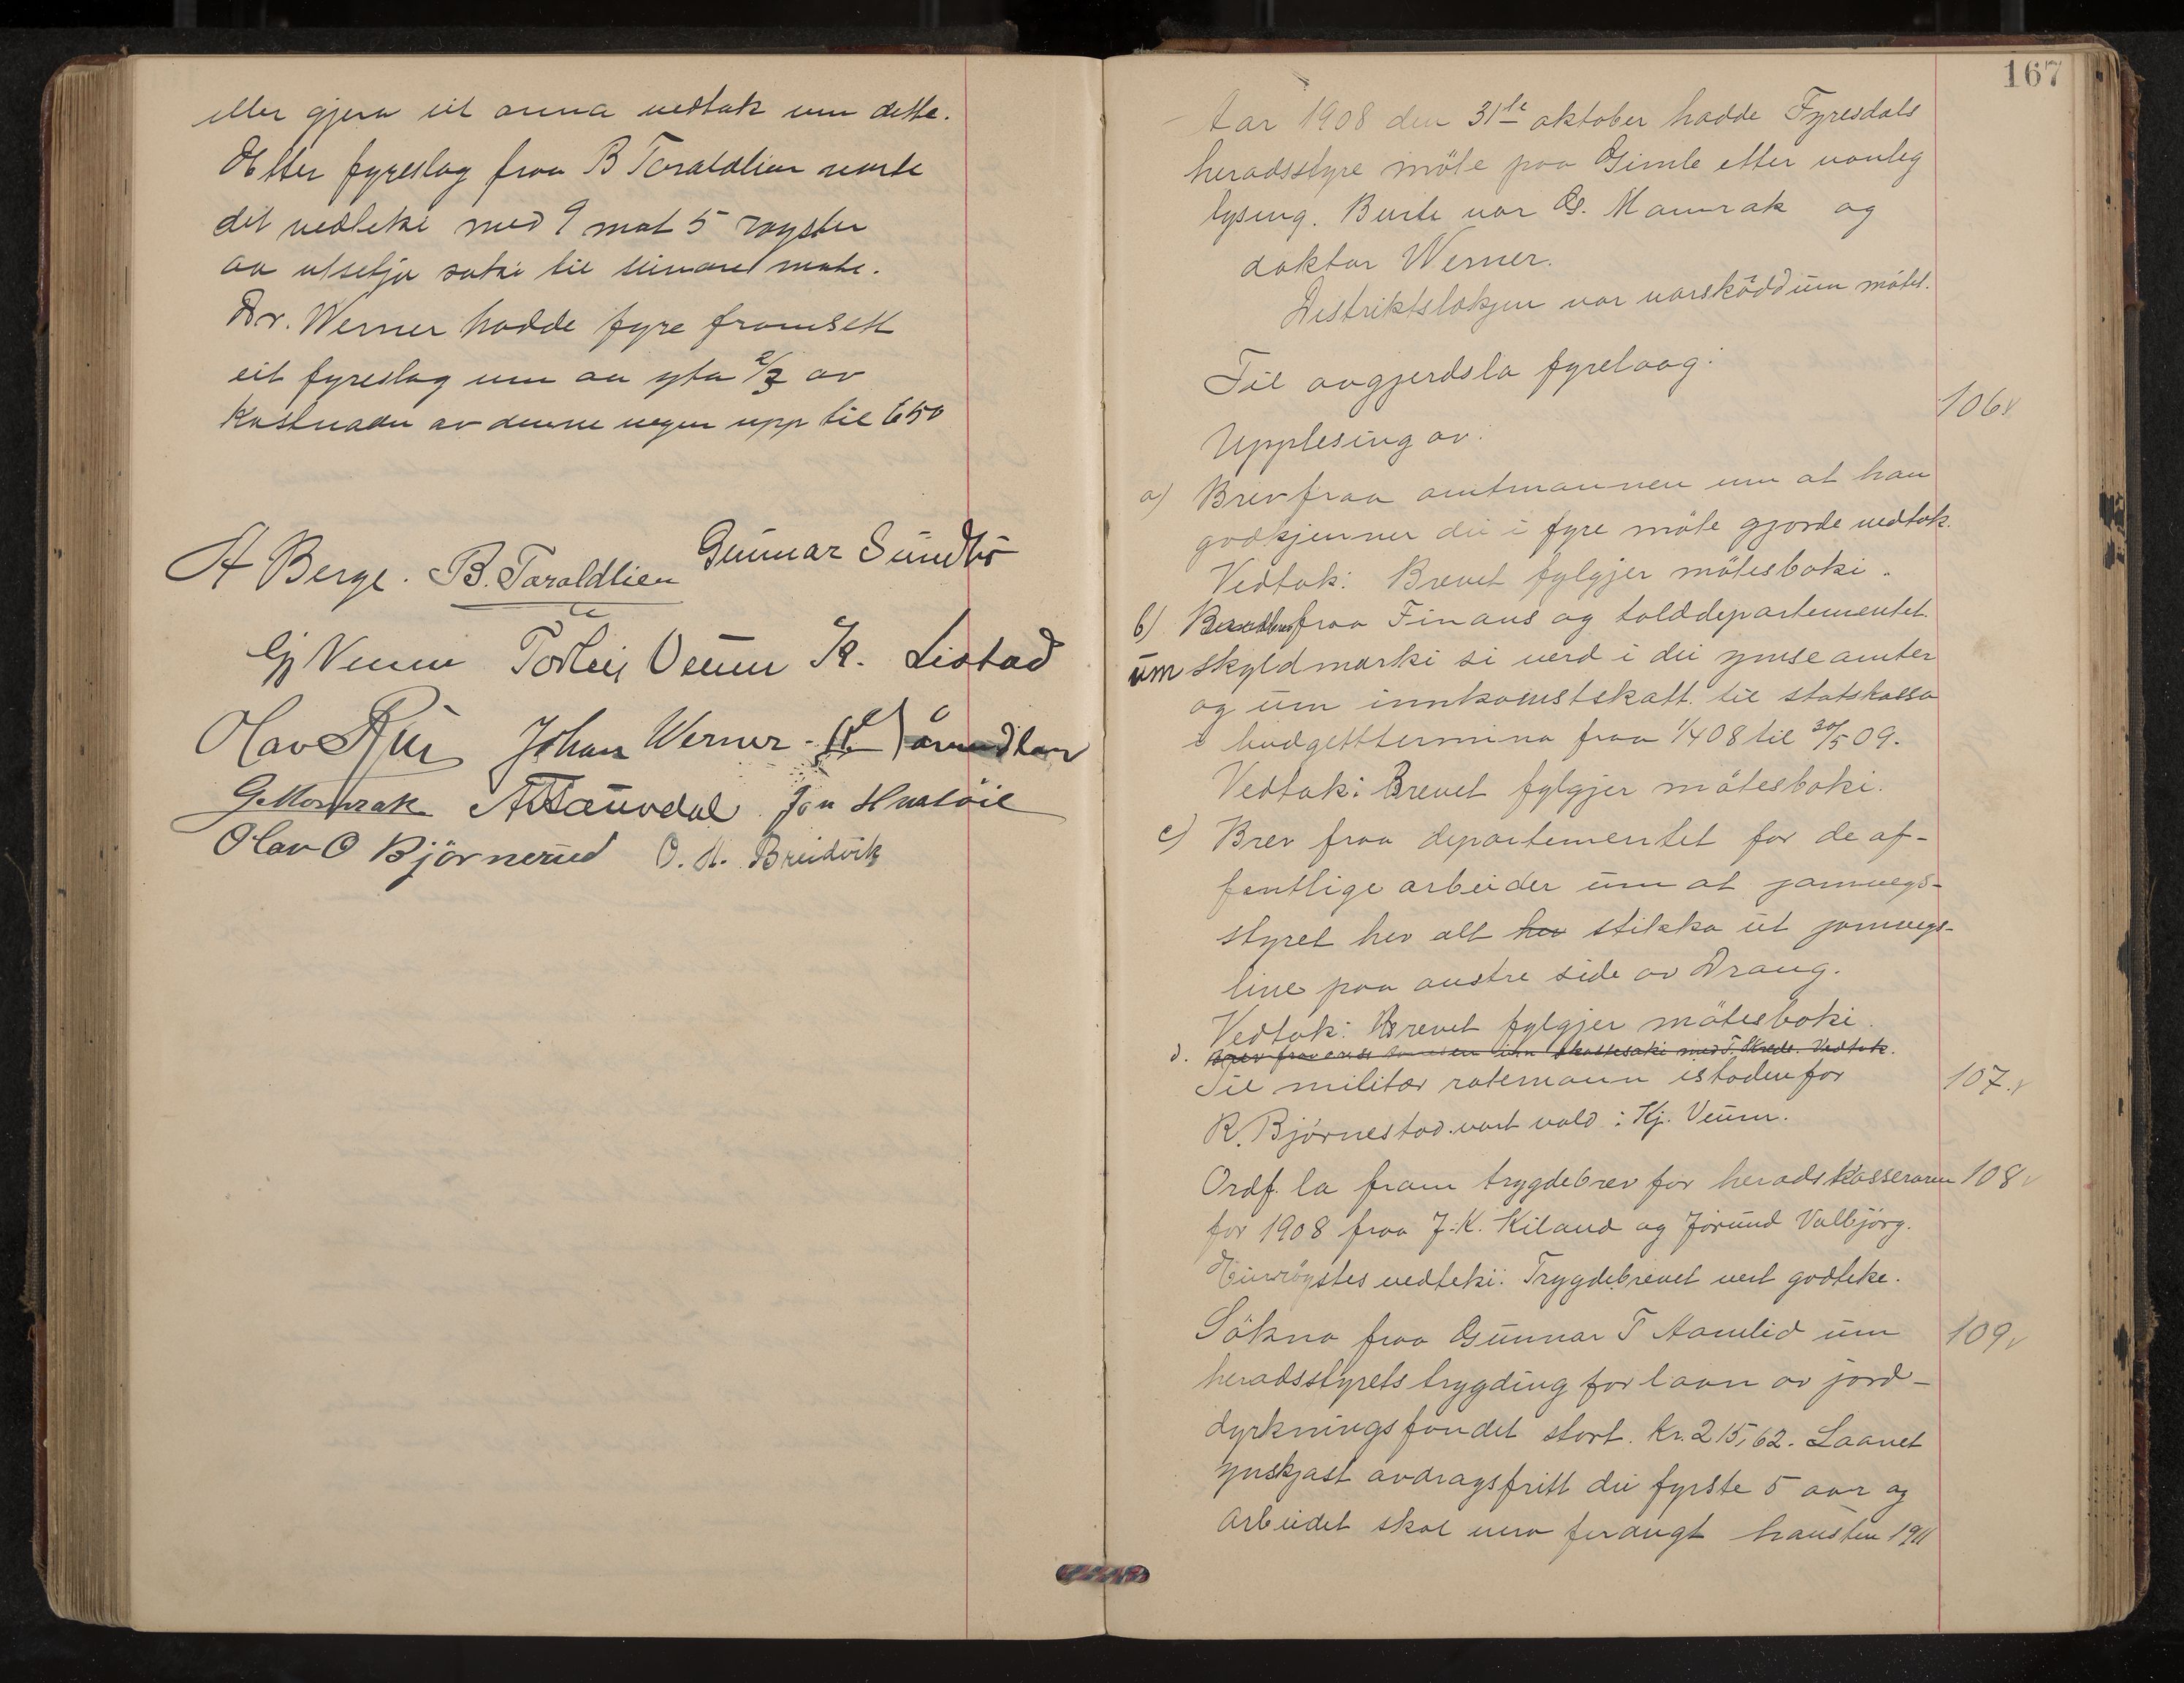 eller gjera eit anna vedtak um dette.
Etter fyreslag fraa B Taraldlien varte
det vedteke med 9 mot 5 røyster
aa utsetja saki til seinare møte.
Dr. Werner hadde fyre framsett
eit fyreslag um aa yta 2/3 av
kostnaden av denne vegen upp til 650
H Berge. B. Taraldlien Gunnar Sundbö
Gj Veum Torleiv Veum K. Listad
Olav Rui Johan Werner
G. Momrak Jon
Olav O Björnerud O. H. Breidvik
167
Aar 1908 den 31te oktober hadde Fyresdals
heradsstyre möte paa Gimle etter vanleg
lysing. Burte var G. Momrak og
doktor Werner.
Distriktslækjen var varsködd um mötet.
Til avgjerdsla fyrelaag:
106
Upplesing av:
a) Brev fraa amtmannen um at han
godkjenner dei i fyre möte gjorde vedtok.
Vedtok: Brevet fylgjer mötesboki.
b) fraa Finans og tolddepartementet
um skyldmarki si verd i dei ymse amter
og um innkomstskatt til statskassa
i budgetttermina fraa 1/4 08 til 30/5 09.
Vedtok: Brevet fylgjer mötesboki.
c) Brev fraa departementet for de of-
fentlige arbeider um at jarnvegs-
styret hev alt hev stikka ut jarnvegs-
line paa austre side av Drang.
Vedtok: Brevet fylgjer mötesboki.
d. Brev fraa um skattesaki med T. Skrede. Vedtok.
Til militær rotemann istadenfor
107.
R. Bjørnestad vart vald: Kj. Veum.
Ordf. la fram trygdebrev for heradskasseraren 108
for 1908 fraa J. K. Kiland og Jörund Valbjörg.
Einröystes vedteki: Trygdebrevet vert godteke.
Sökna fraa Gunnar T Aamlid um 109
heradsstyrets trygding for laan av jord-
dyrkningsfondet stort kr. 215,62. Laanet
ynskjast avdragsfritt dei fyrste 5 aar og
arbeidet skal vera ferdugt hausten 1911